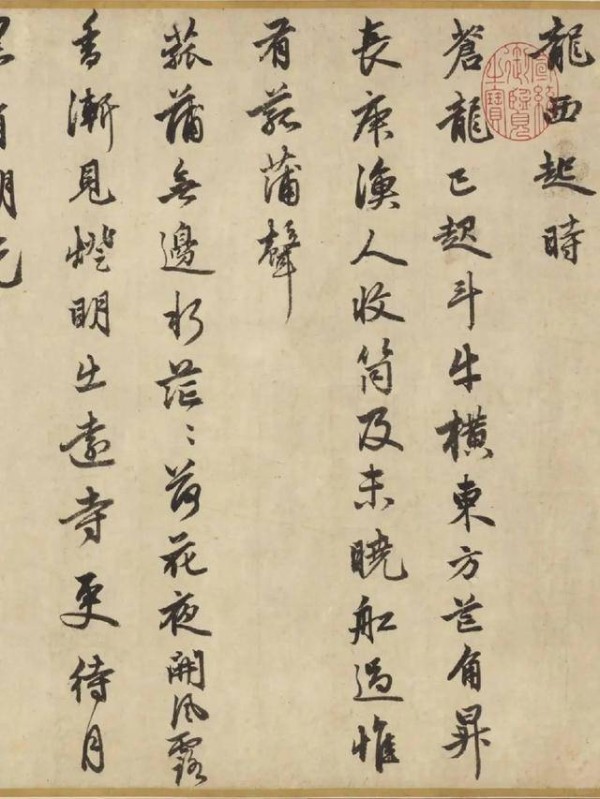 龍西起時
蒼龍已起斗牛橫東方芒角昇
長庚漁人收筒及未曉舡過惟
有菰蒲聲
菰蒲無邊水茫〻荷花夜開風露
香漸見燈明出遠寺更待月
黑看湖光
宣統御覽之寶